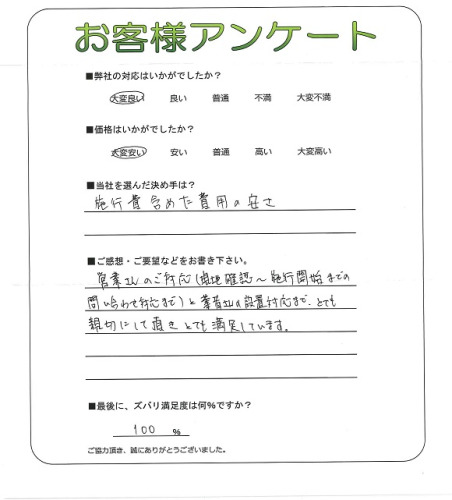 お客様アンケート
■弊社の対応はいかがでしたか？
大変良い 良い 普通 不満 大変不満
■価格はいかがでしたか？
大変安い 安い 普通 高い 大変高い
■当社を選んだ決め手は？
施行費含めた費用の安さ
■ご感想・ご要望などをお書き下さい。
営業さんのご対応(現地確認～施行開始までの
問い合わせ対応まで)と業者さんの設置対応まで、とても
親切にして頂きとても満足しています。
■最後に、ズバリ満足度は何％ですか？
100 ％
ご協力頂き、誠にありがとうございました。